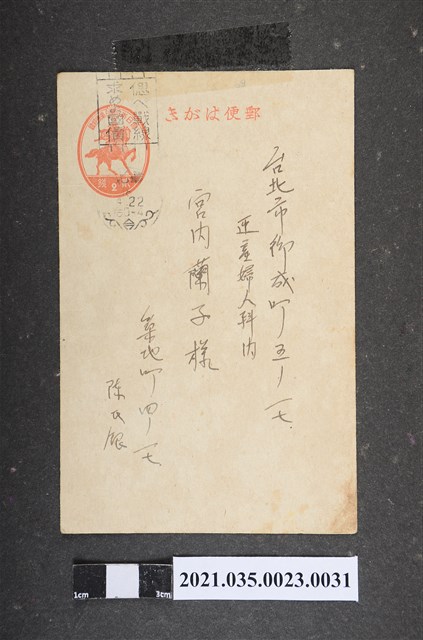 郵便はがき
憶へ戦線
求め国債
22
台北市御成町五ノ一七
産婦人科内
宮内蘭子様
築地町四ノ一七
陳
1cm
3cm
2021.035.0023.0031